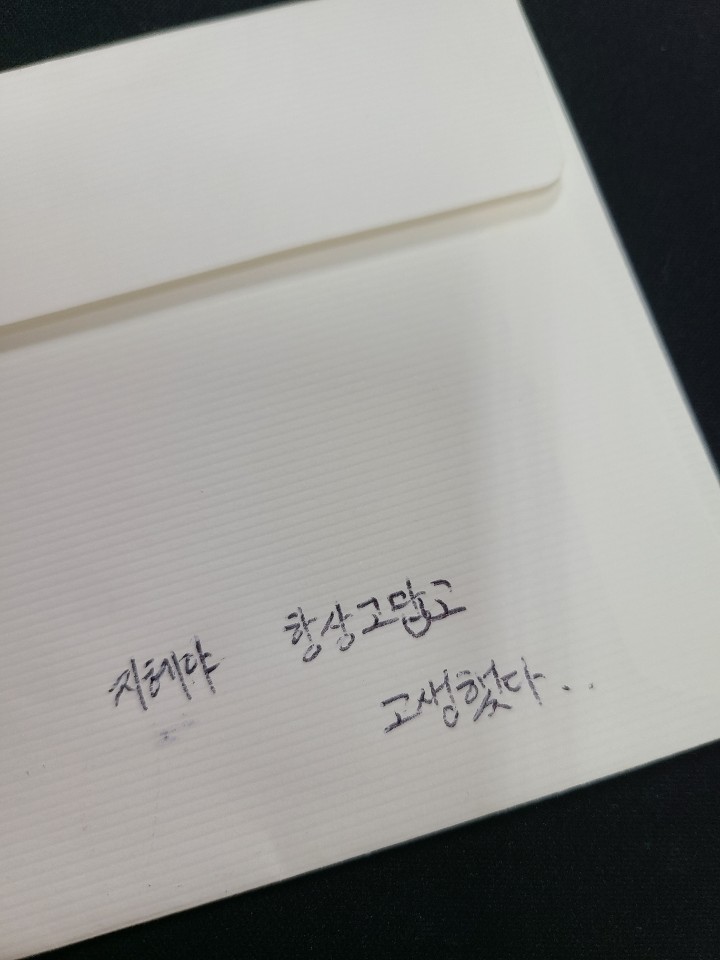 지혜야 항상 고맙고
고생했다..